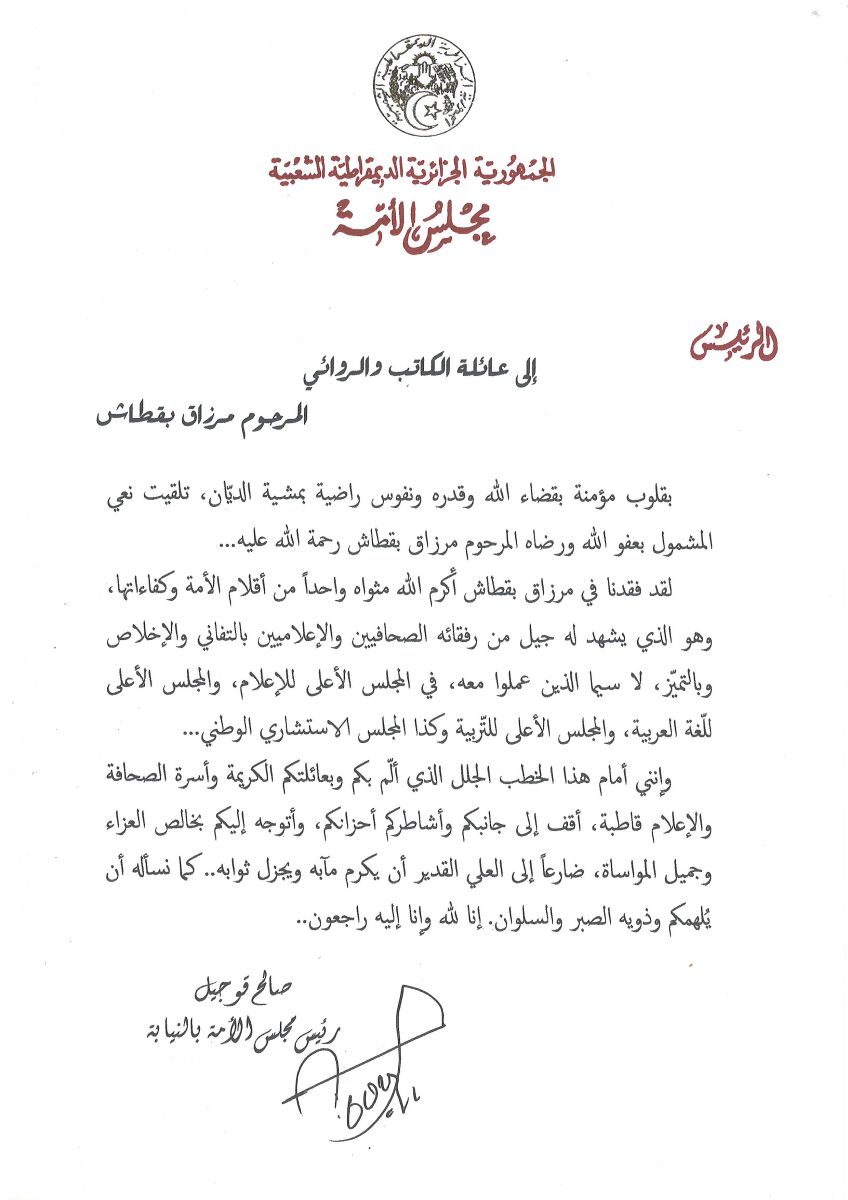 الجمهورية الجزائرية الديمقراطية الشعبية
الجمهوريّة الجزائريّة الديمقراطيّة الشعبيّة
مجلس الأمّة
الرئيس
إلى عائلة الكاتب والروائي
المرحوم مرزاق بقطاش
بقلوب مؤمنة بقضاء الله وقدره ونفوس راضية بمشية الديّان، تلقيت نعي
المشمول بعفو الله ورضاه المرحوم مرزاق بقطاش رحمة الله عليه...
لقد فقدنا في مرزاق بقطاش أكرم الله مثواه واحداً من أقلام الأمة وكفاءاتها،
وهو الذي يشهد له جيل من رفقائه الصحافيين والإعلاميين بالتفاني والإخلاص
وبالتميّز، لا سيما الذين عملوا معه، في المجلس الأعلى للإعلام، والمجلس الأعلى
للّغة العربية، والمجلس الأعلى للتّربية وكذا المجلس الاستشاري الوطني...
وإنني أمام هذا الخطب الجلل الذي ألّم بكم وبعائلتكم الكريمة وأسرة الصحافة
والإعلام قاطبة، أقف إلى جانبكم وأشاطركم أحزانكم، وأتوجه إليكم بخالص العزاء
وجميل المواساة، ضارعاً إلى العلي القدير أن يكرم مآبه ويجزل ثوابه.. كما نسأله أن
يُلهمكم وذويه الصبر والسلوان. إنا لله وانا إليه راجعون..
صالح قوجيل
رئيس مجلس الأمة بالنيابة